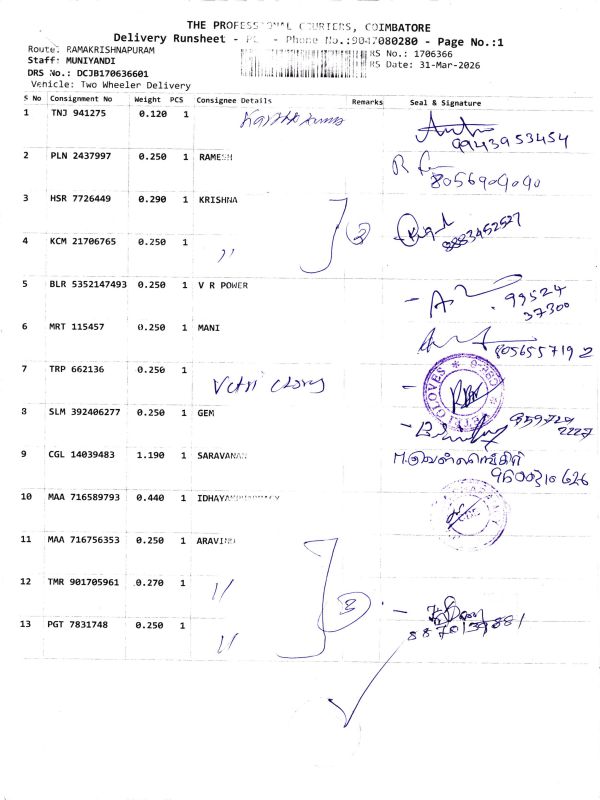 THE PROFESSIONAL COURIERS, COIMBATORE
Delivery Runsheet - Phone No.:9047080280 - Page No.:1
Route: RAMAKRISHNAPURAM
RS No.: 1706366
Staff: MUNIYANDI
RS Date: 31-Mar-2026
DRS No.: DCJB170636601
Vehicle: Two Wheeler Delivery
S No Consignment No Weight PCS Consignee Details Remarks Seal & Signature
1 TNJ 941275 0.120 1
99943953454
2 PLN 2437997 0.250 1 RAMESH
8056909090
3 HSR 7726449 0.290 1 KRISHNA
2
8883452527
4 KCM 21706765 0.250 1 "
5 BLR 5352147493 0.250 1 V R POWER
99524
37300
6 MRT 115457 0.250 1 MANI
8056557192
7 TRP 662136 0.250 1 Vetri Gloves
8 SLM 392406277 0.250 1 GEM
9 CGL 14039483 1.190 1 SARAVANAN
9600310626
10 MAA 716589793 0.440 1 IDHAYAMPHARMACY
11 MAA 716756353 0.250 1 ARAVIND
12 TMR 901705961 0.270 1 "
3
13 PGT 7831748 0.250 1 "